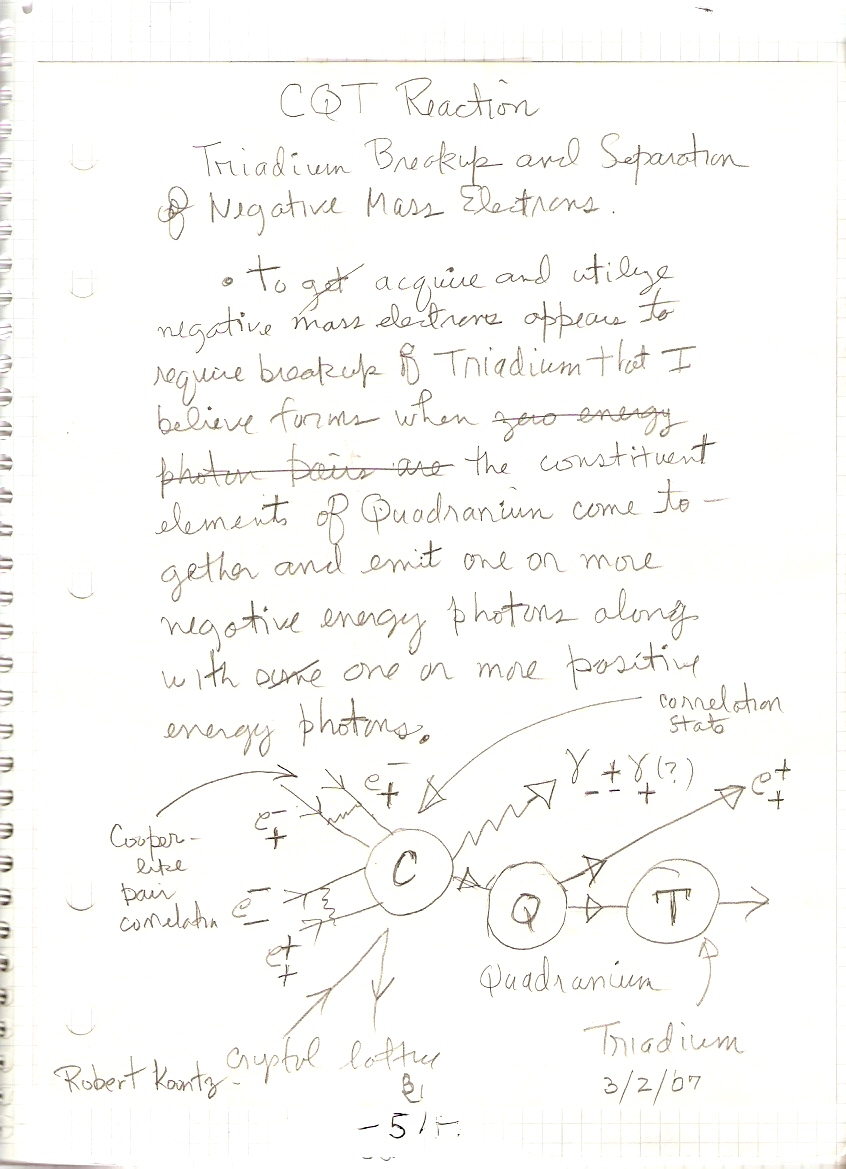 CQT Reaction
Triadium Breakup and Separation
of Negative Mass Electrons.
• To get acquire and utilize
negative mass electrons appears to
require breakup of Triadium that I
believe forms when zero energy
photon pairs are the constituent
elements of Quadranium come to-
gether and emit one or more
negative energy photons along
with some one or more positive
energy photons.
correlation
state
e-+
γ-- + γ++(?)
e++
e-+
Cooper-
like
pair
correlation
e--
e++
C
Q
T
Quadranium
Triadium
crystal lattice
Robert Koontz
3/2/07